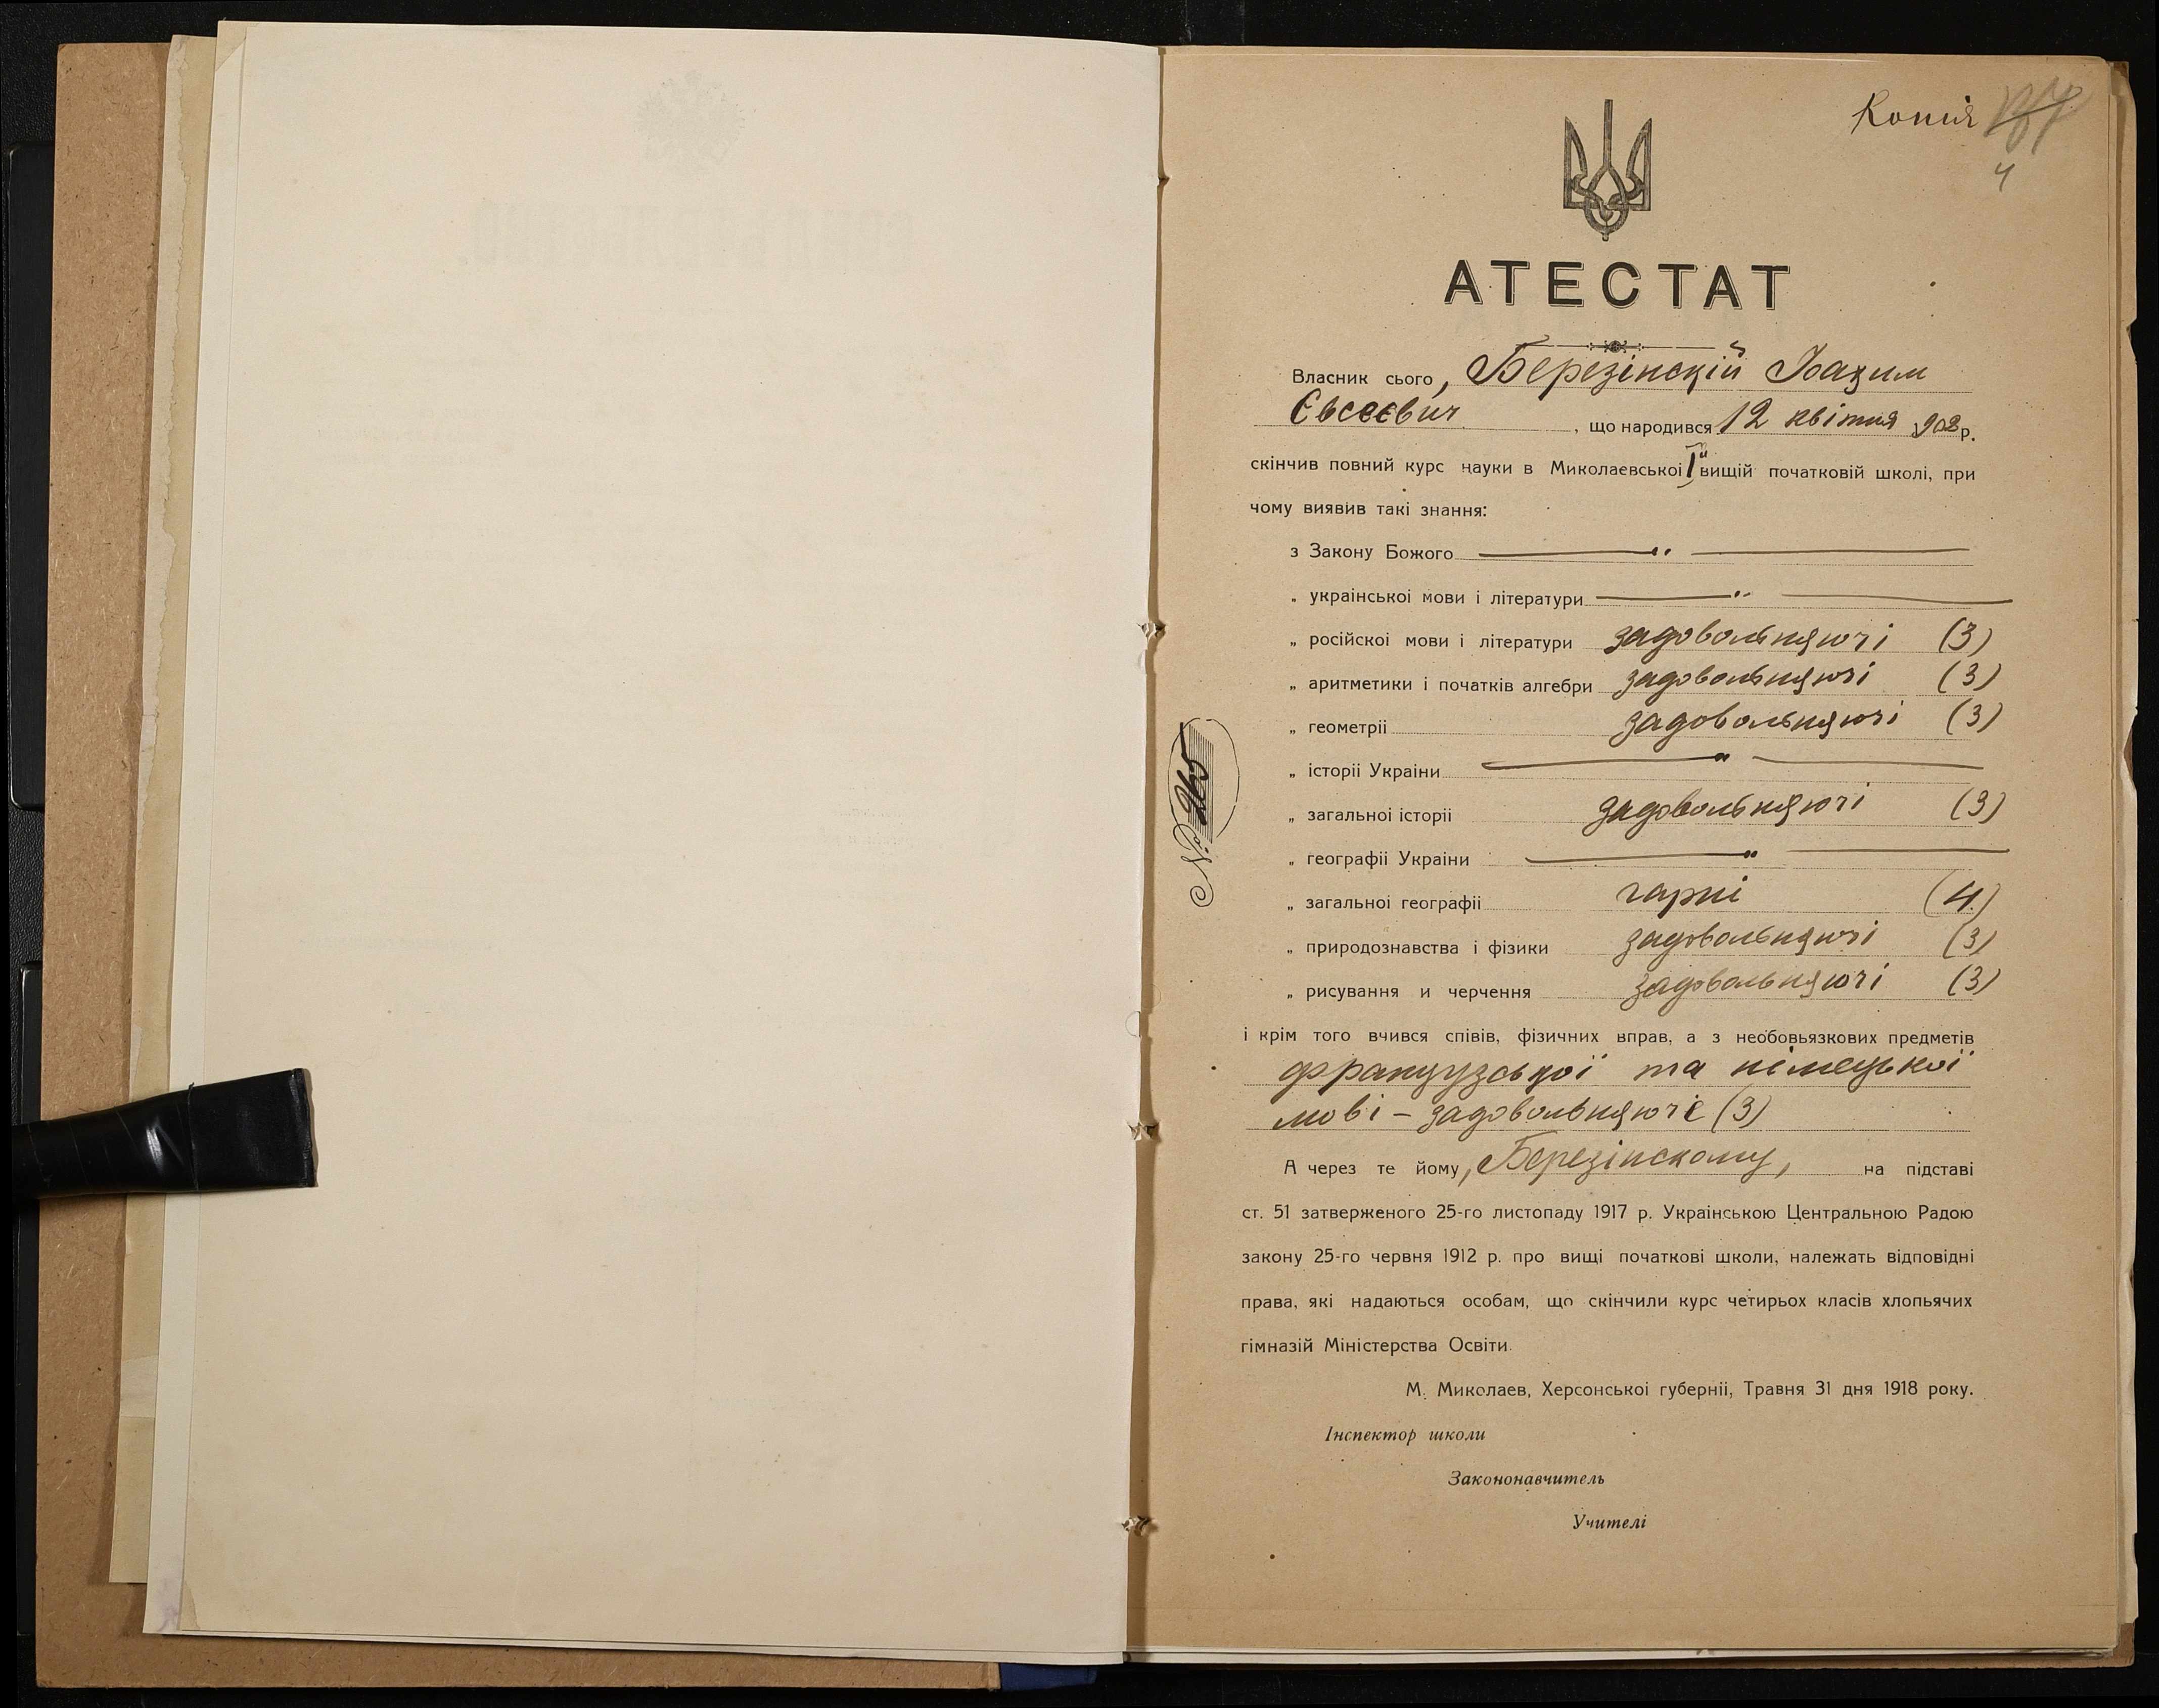 Копія
4
АТЕСТАТ
Власник сього, Березінскій Іоахим
Євсеєвич, що народився 12 квітня 1902 р.
скінчив повний курс науки в Миколаевськоі Iй вищій початковій школі, при
чому виявив такі знання:
з Закону Божого — „ —
„ украінськоі мови і літератури — „ —
„ російскоі мови і літератури задовольняючі (3)
„ аритметики і початків алгебри задовольняючі (3)
„ геометріі задовольняючі (3)
„ історіі Украіни — „ —
„ загальноі історіі задовольняючі (3)
„ географіі Украіни — „ —
„ загальноі географіі гарні (4)
„ природознавства і фізики задовольняючі (3)
„ рисування и черчення задовольняючі (3)
і крім того вчився співів, фізичних вправ, а з необовьязкових предметів
французськоі та німецькоі
мові – задовольняючі (3)
А через те йому, Березінскому, на підставі
ст. 51 затверженого 25-го листопаду 1917 р. Украінською Центральною Радою
закону 25-го червня 1912 р. про вищі початкові школи, належать відповідні
права, які надаються особам, що скінчили курс четирьох класів хлопьячих
гімназій Міністерства Освіти.
М. Миколаев, Херсонськоі губерніі, Травня 31 дня 1918 року.
Інспектор школи
Закононавчитель
Учителі
№ 265